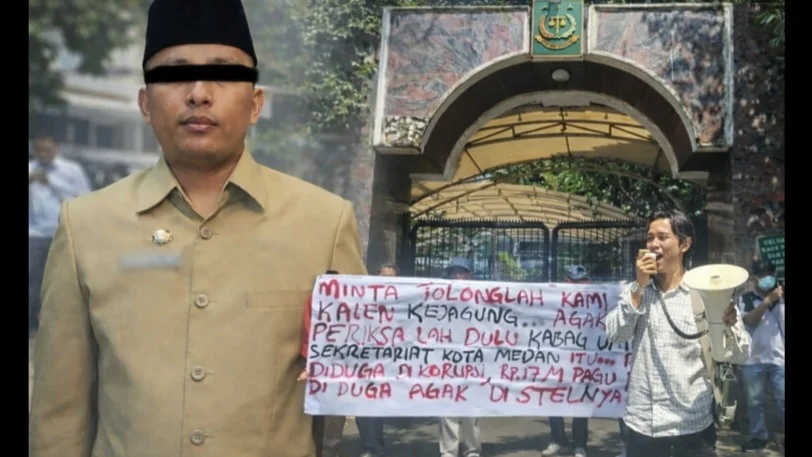 MINTA TOLONGLAH KAMI
KALEN KEJAGUNG... AGAK
PERIKSA LAH DULU KABAG
SEKRETARIAT KOTA MEDAN ITU...
DIDUGA DI KORUPSI, RP.17.M PAGU
DI DUGA AGAK DI STELNYA